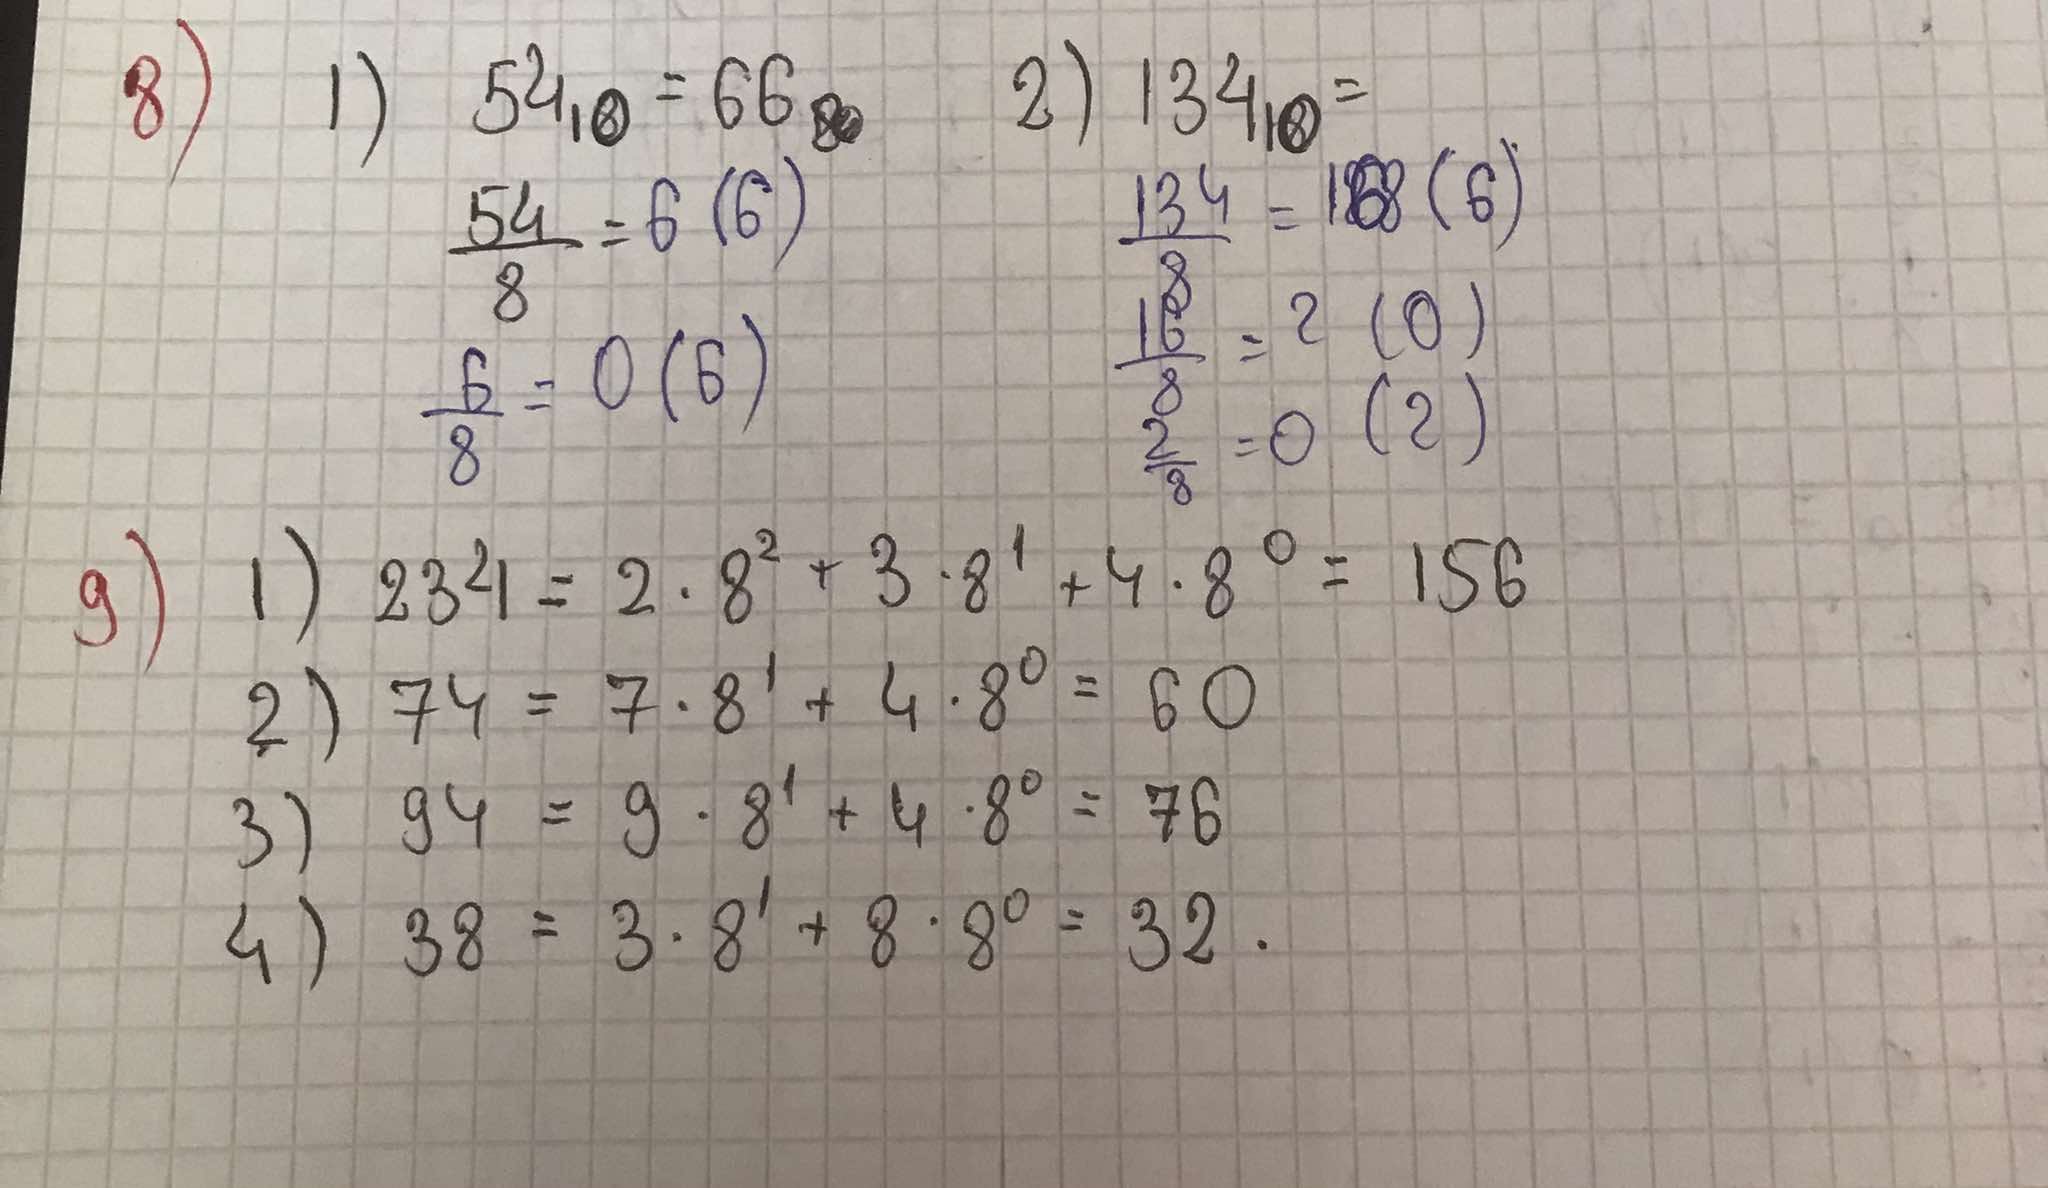 8) 1) 54₁₀ = 66₈ 2) 134₁₀ =
54/8 = 6 (6) 134/8 = (6)
6/8 = 0 (6) 16/8 = 2 (0)
2/8 = 0 (2)
9) 1) 234 = 2 · 8² + 3 · 8¹ + 4 · 8⁰ = 156
2) 74 = 7 · 8¹ + 4 · 8⁰ = 60
3) 94 = 9 · 8¹ + 4 · 8⁰ = 76
4) 38 = 3 · 8¹ + 8 · 8⁰ = 32 .